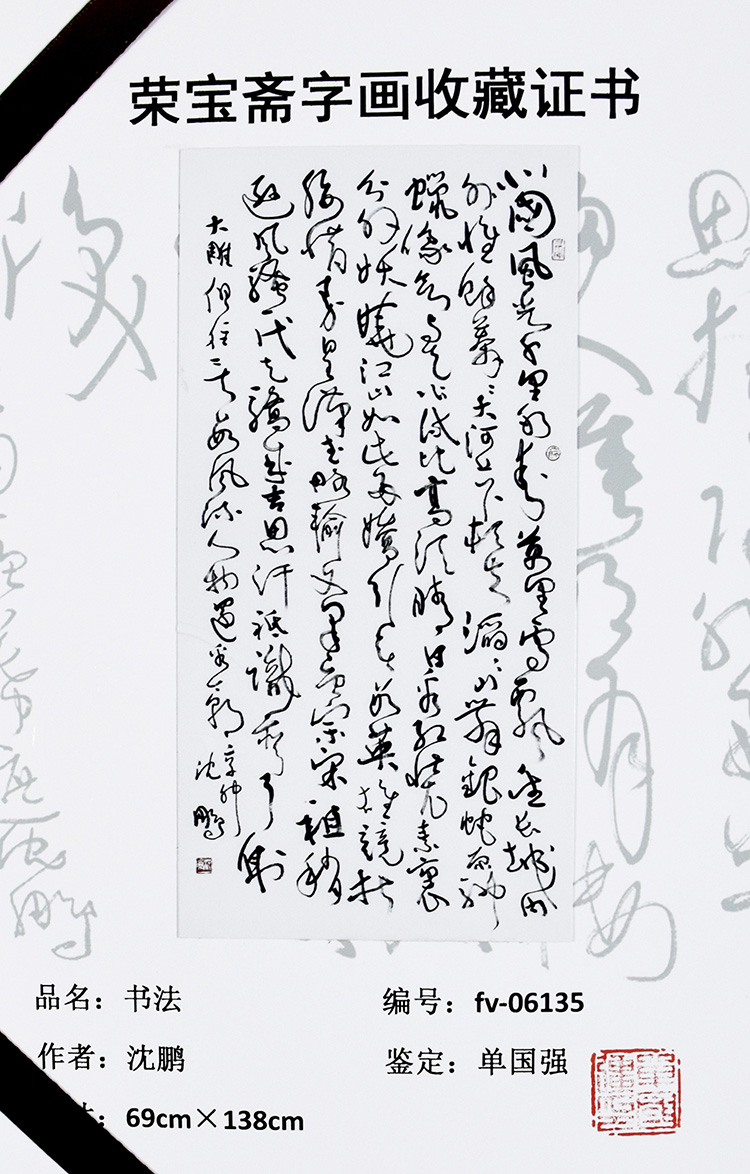 荣宝斋字画收藏证书
北國風光千里冰封萬里雪飄望长城内
外惟馀莽〻大河上下顿失滔〻山舞銀蛇原驰
蠟象欲与天公试比高须晴日看红装素裹
分外妖嬈江山如此多嬌引无数英雄競折
腰惜秦皇漢武略輸文采唐宗宋祖稍
逊风騷一代天驕成吉思汗祗識弯弓射
大雕俱往矣数风流人物还看今朝
沈鹏
品名：书法
编号：fv-06135
作者：沈鹏
鉴定：单国强
69cm×138cm